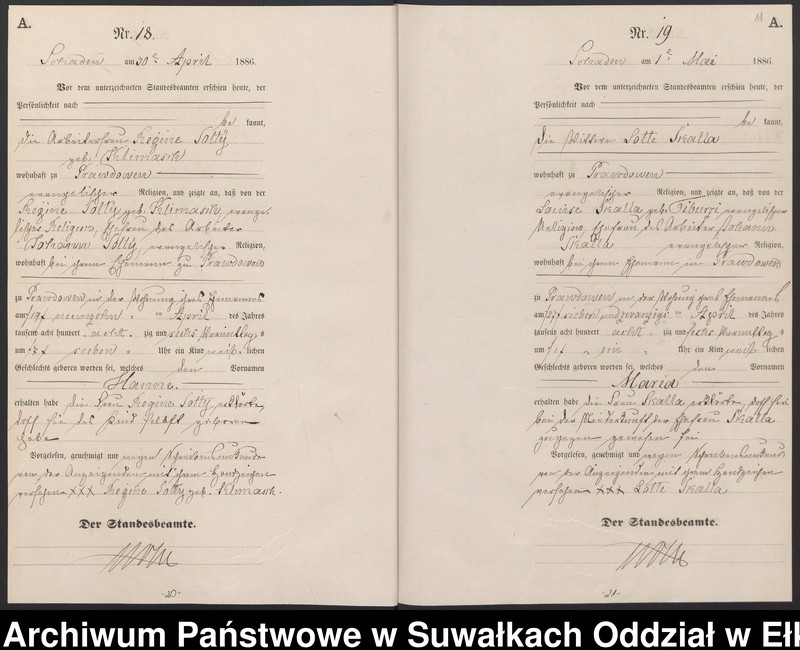 A.
Nr. 18.
am 30ten April 1886.
Vor dem unterzeichneten Standesbeamten erschien heute, der
Persönlichkeit nach
be kannt,
die Arbeiterfrau Regine Solty
geb. Klimasch
wohnhaft zu Prawdowen
evangelischer Religion, und zeigte an, daß von der
Regine Solty geb. Klimasch, evange-
lischer Religion, Ehefrau des Arbeiter
Johann Solty, evangelischer Religion,
wohnhaft bei ihrem Ehemann zu Prawdowen
zu Prawdowen in der Wohnung ihres Ehemannes
am 19 neunzehn ten April des Jahres
tausend acht hundert acht zig und sechs Vormittag s
um 7 sieben Uhr ein Kind weib lichen
Geschlechts geboren worden sei, welches den Vornamen
Hanne.
erhalten habe die Frau Regine Solty erklärte,
daß sie das Kind selbst geboren
habe
Vorgelesen, genehmigt und wegen Schreibensunkunde
von der Anzeigenden mit ihrem Handzeichen
versehen xxx Regine Solty geb. Klimasch.
Der Standesbeamte.
-20-
11 A.
Nr. 19
am 1ten Mai 1886.
Vor dem unterzeichneten Standesbeamten erschien heute, der
Persönlichkeit nach
be kannt,
die Wittwe Lotte Skalla
wohnhaft zu Prawdowen
evangelischer Religion, und zeigte an, daß von der
Louise Skalla geb. evangelischer
Religion, Ehefrau des Arbeiter Johann
Skalla evangelischer Religion,
wohnhaft bei ihrem Ehemann in Prawdowen
zu Prawdowen in der Wohnung ihres Ehemannes
am 27 sieben und zwanzigs ten April des Jahres
tausend acht hundert acht zig und sechs Vormittag s
um 1 ein Uhr ein Kind weib lichen
Geschlechts geboren worden sei, welches den Vornamen
Maria
erhalten habe die Frau Skalla erklärte, daß sie
bei der Niederkunft der Ehefrau Skalla
zugegen gewesen sei
Vorgelesen, genehmigt und wegen Schreibensunkunde
von der Anzeigenden mit ihrem Handzeichen
versehen xxx Lotte Skalla
Der Standesbeamte.
-21-
Archiwum Państwowe w Suwałkach Oddział w Eł